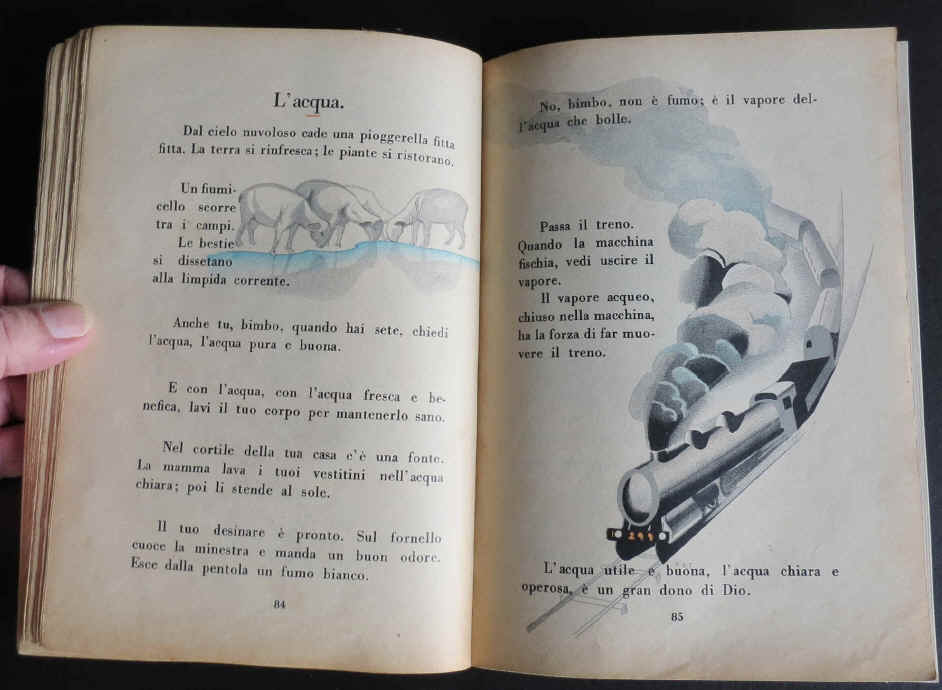 L'acqua.
Dal cielo nuvoloso cade una pioggerella fitta
fitta. La terra si rinfresca; le piante si ristorano.
Un fiumi-
cello scorre
tra i campi.
Le bestie
si dissetano
alla limpida corrente.
Anche tu, bimbo, quando hai sete, chiedi
l'acqua, l'acqua pura e buona.
E con l'acqua, con l'acqua fresca e be-
nefica, lavi il tuo corpo per mantenerlo sano.
Nel cortile della tua casa c'è una fonte.
La mamma lava i tuoi vestitini nell'acqua
chiara; poi li stende al sole.
Il tuo desinare è pronto. Sul fornello
cuoce la minestra e manda un buon odore.
Esce dalla pentola un fumo bianco.
84
No, bimbo, non è fumo; è il vapore del-
l'acqua che bolle.
Passa il treno.
Quando la macchina
fischia, vedi uscire il
vapore.
Il vapore acqueo,
chiuso nella macchina,
ha la forza di far muo-
vere il treno.
299
L'acqua utile e buona, l'acqua chiara e
operosa, è un gran dono di Dio.
85